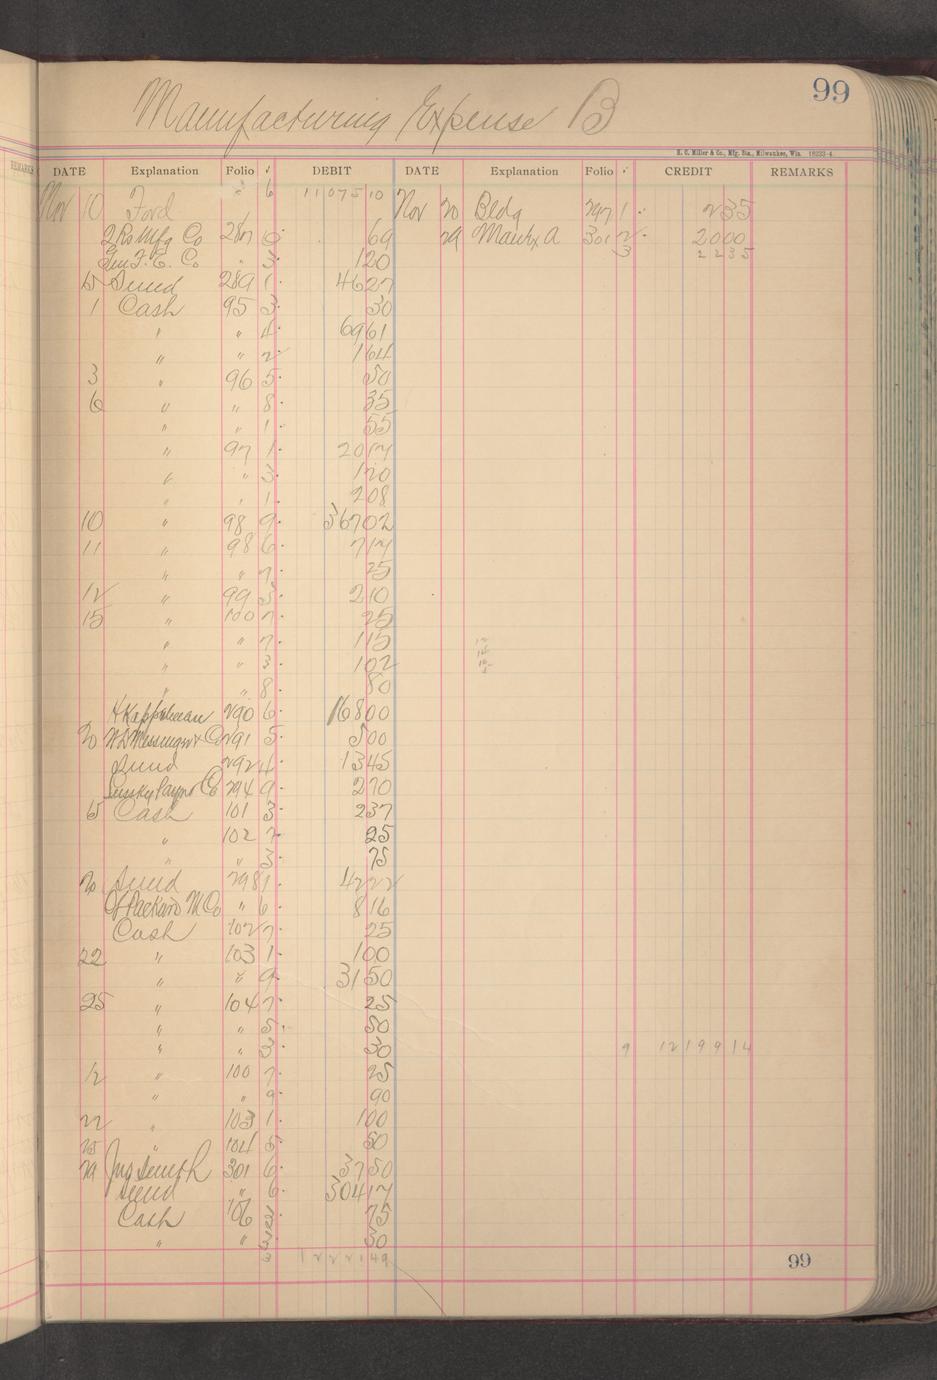 99
Manufacturing Expense B
H. C. Miller & Co., Mfg. Sta., Milwaukee, Wis. 18233-4
REMARKS DATE Explanation Folio √ DEBIT DATE Explanation Folio √ CREDIT REMARKS
Nov 10 Ford 6 11075 10 Nov 20 Bldg 297 1 2 35
2 Rs Mfg Co 287 69 29 Manfx A 301 2 20 00
Gen F. E. Co " 3 1 20 3 22 35
15 Sund 289 1 46 27
1 Cash 95 3 30
" " 4 69 61
" " 2 1 64
3 " 96 5 50
6 " " 8 35
" " 1 55
" 97 1 20 17
" " 3 1 20
" " 1 2 08
10 " 98 9 367 02
11 " 98 6 7 17
" " 7 25
12 " 99 3 2 10
15 " 100 7 25
" " 7 1 15
" " 3 1 02
" " 8 80
H Kappelman 290 6 168 00
20 291 5 5 00
Sund 292 4 13 45
Co 294 9 2 70
15 Cash 101 3 2 37
" 102 7 25
" " 3 75
20 Sund 298 1 42 22
Of Packard M Co " 6 8 16
Cash 102 7 25
22 " 103 1 1 00
" " 9 31 50
25 " 104 7 25
" " 5 50
" " 3 30 9 12199 14
12 " 100 7 25
" " 9 90
22 " 103 1 1 00
25 " 104 5 50
29 Jno Smith 301 6 37 50
Sund " 6 304 17
Cash 106 75
" " 30
3 12221 49
99